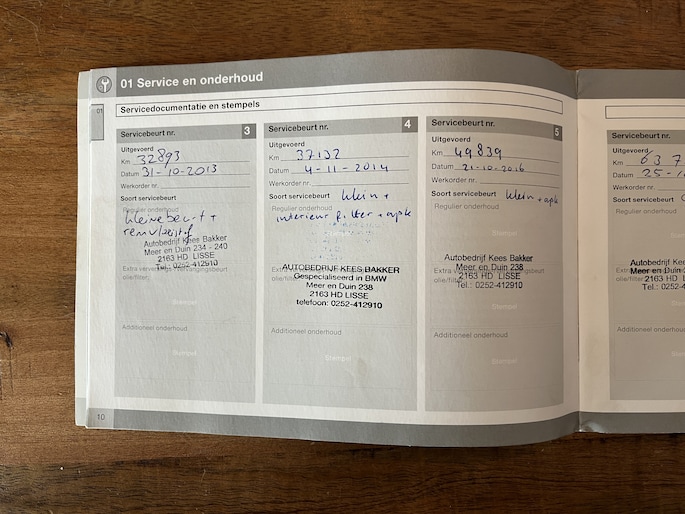 01 Service en onderhoud
01
Servicedocumentatie en stempels
Servicebeurt nr. 3
Uitgevoerd
Km 32893
Datum 31-10-2013
Werkorder nr.
Soort servicebeurt
Regulier onderhoud
kleine beurt +
remvloeistof
Autobedrijf Kees Bakker
Meer en Duin 234 - 240
2163 HD LISSE
Tel.: 0252-412910
Extra verversings-/vervangingsbeurt
olie/filter:
Stempel
Additioneel onderhoud
Stempel
Servicebeurt nr. 4
Uitgevoerd
Km 37132
Datum 4-11-2014
Werkorder nr.
Soort servicebeurt klein +
Regulier onderhoud
interieur filter + apk
AUTOBEDRIJF KEES BAKKER
Gespecialiseerd in BMW
Meer en Duin 238
2163 HD LISSE
telefoon: 0252-412910
Stempel
Additioneel onderhoud
Stempel
Servicebeurt nr. 5
Uitgevoerd
Km 49839
Datum 21-10-2016
Werkorder nr.
Soort servicebeurt klein + apk
Regulier onderhoud
Autobedrijf Kees Bakker
Meer en Duin 238
2163 HD LISSE
Tel.: 0252-412910
olie/filter:
Stempel
Additioneel onderhoud
Stempel
Servicebeurt nr.
Uitgevoerd
Km 637
Datum 25-
Werkorder nr.
Soort servicebeurt
Regulier onderhoud
Autobedri
Meer en Dui
2163 HD L
Tel.: 02
olie/filter:
Additioneel onderho
10